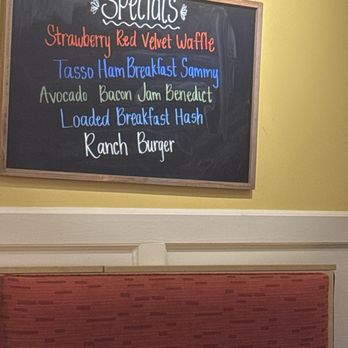 Specials
Strawberry Red Velvet Waffle
Tasso Ham Breakfast Sammy
Avocado Bacon Jam Benedict
Loaded Breakfast Hash
Ranch Burger